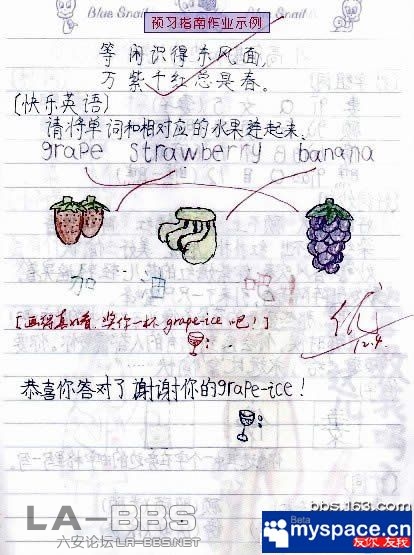 Blue Snail
Blue Snail
预习指南作业示例
等闲识得东风面，
万紫千红总是春。
(快乐英语)
请将单词和相对应的水果连起来。
grape strawberry banana
加油吧!
[画得真好看,奖你一杯grape-ice吧!]
优
12.4.
恭喜你答对了谢谢你的grape-ice!
LA-BBS
六安论坛LA-BBS.NET
bbs.163.com
Beta
myspace.cn
友你 友我